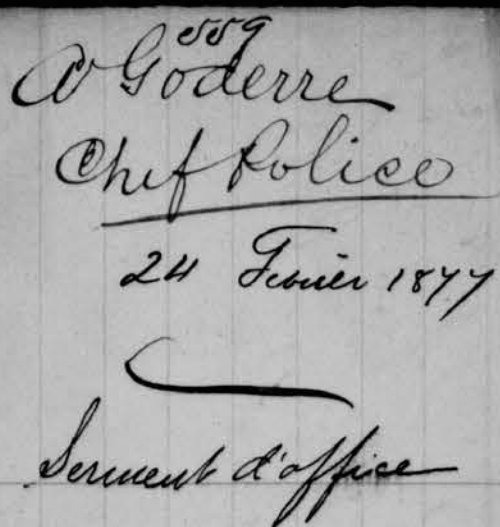 559
A Goderre
Chef Police
24 Fevrier 1877
Serment d'office